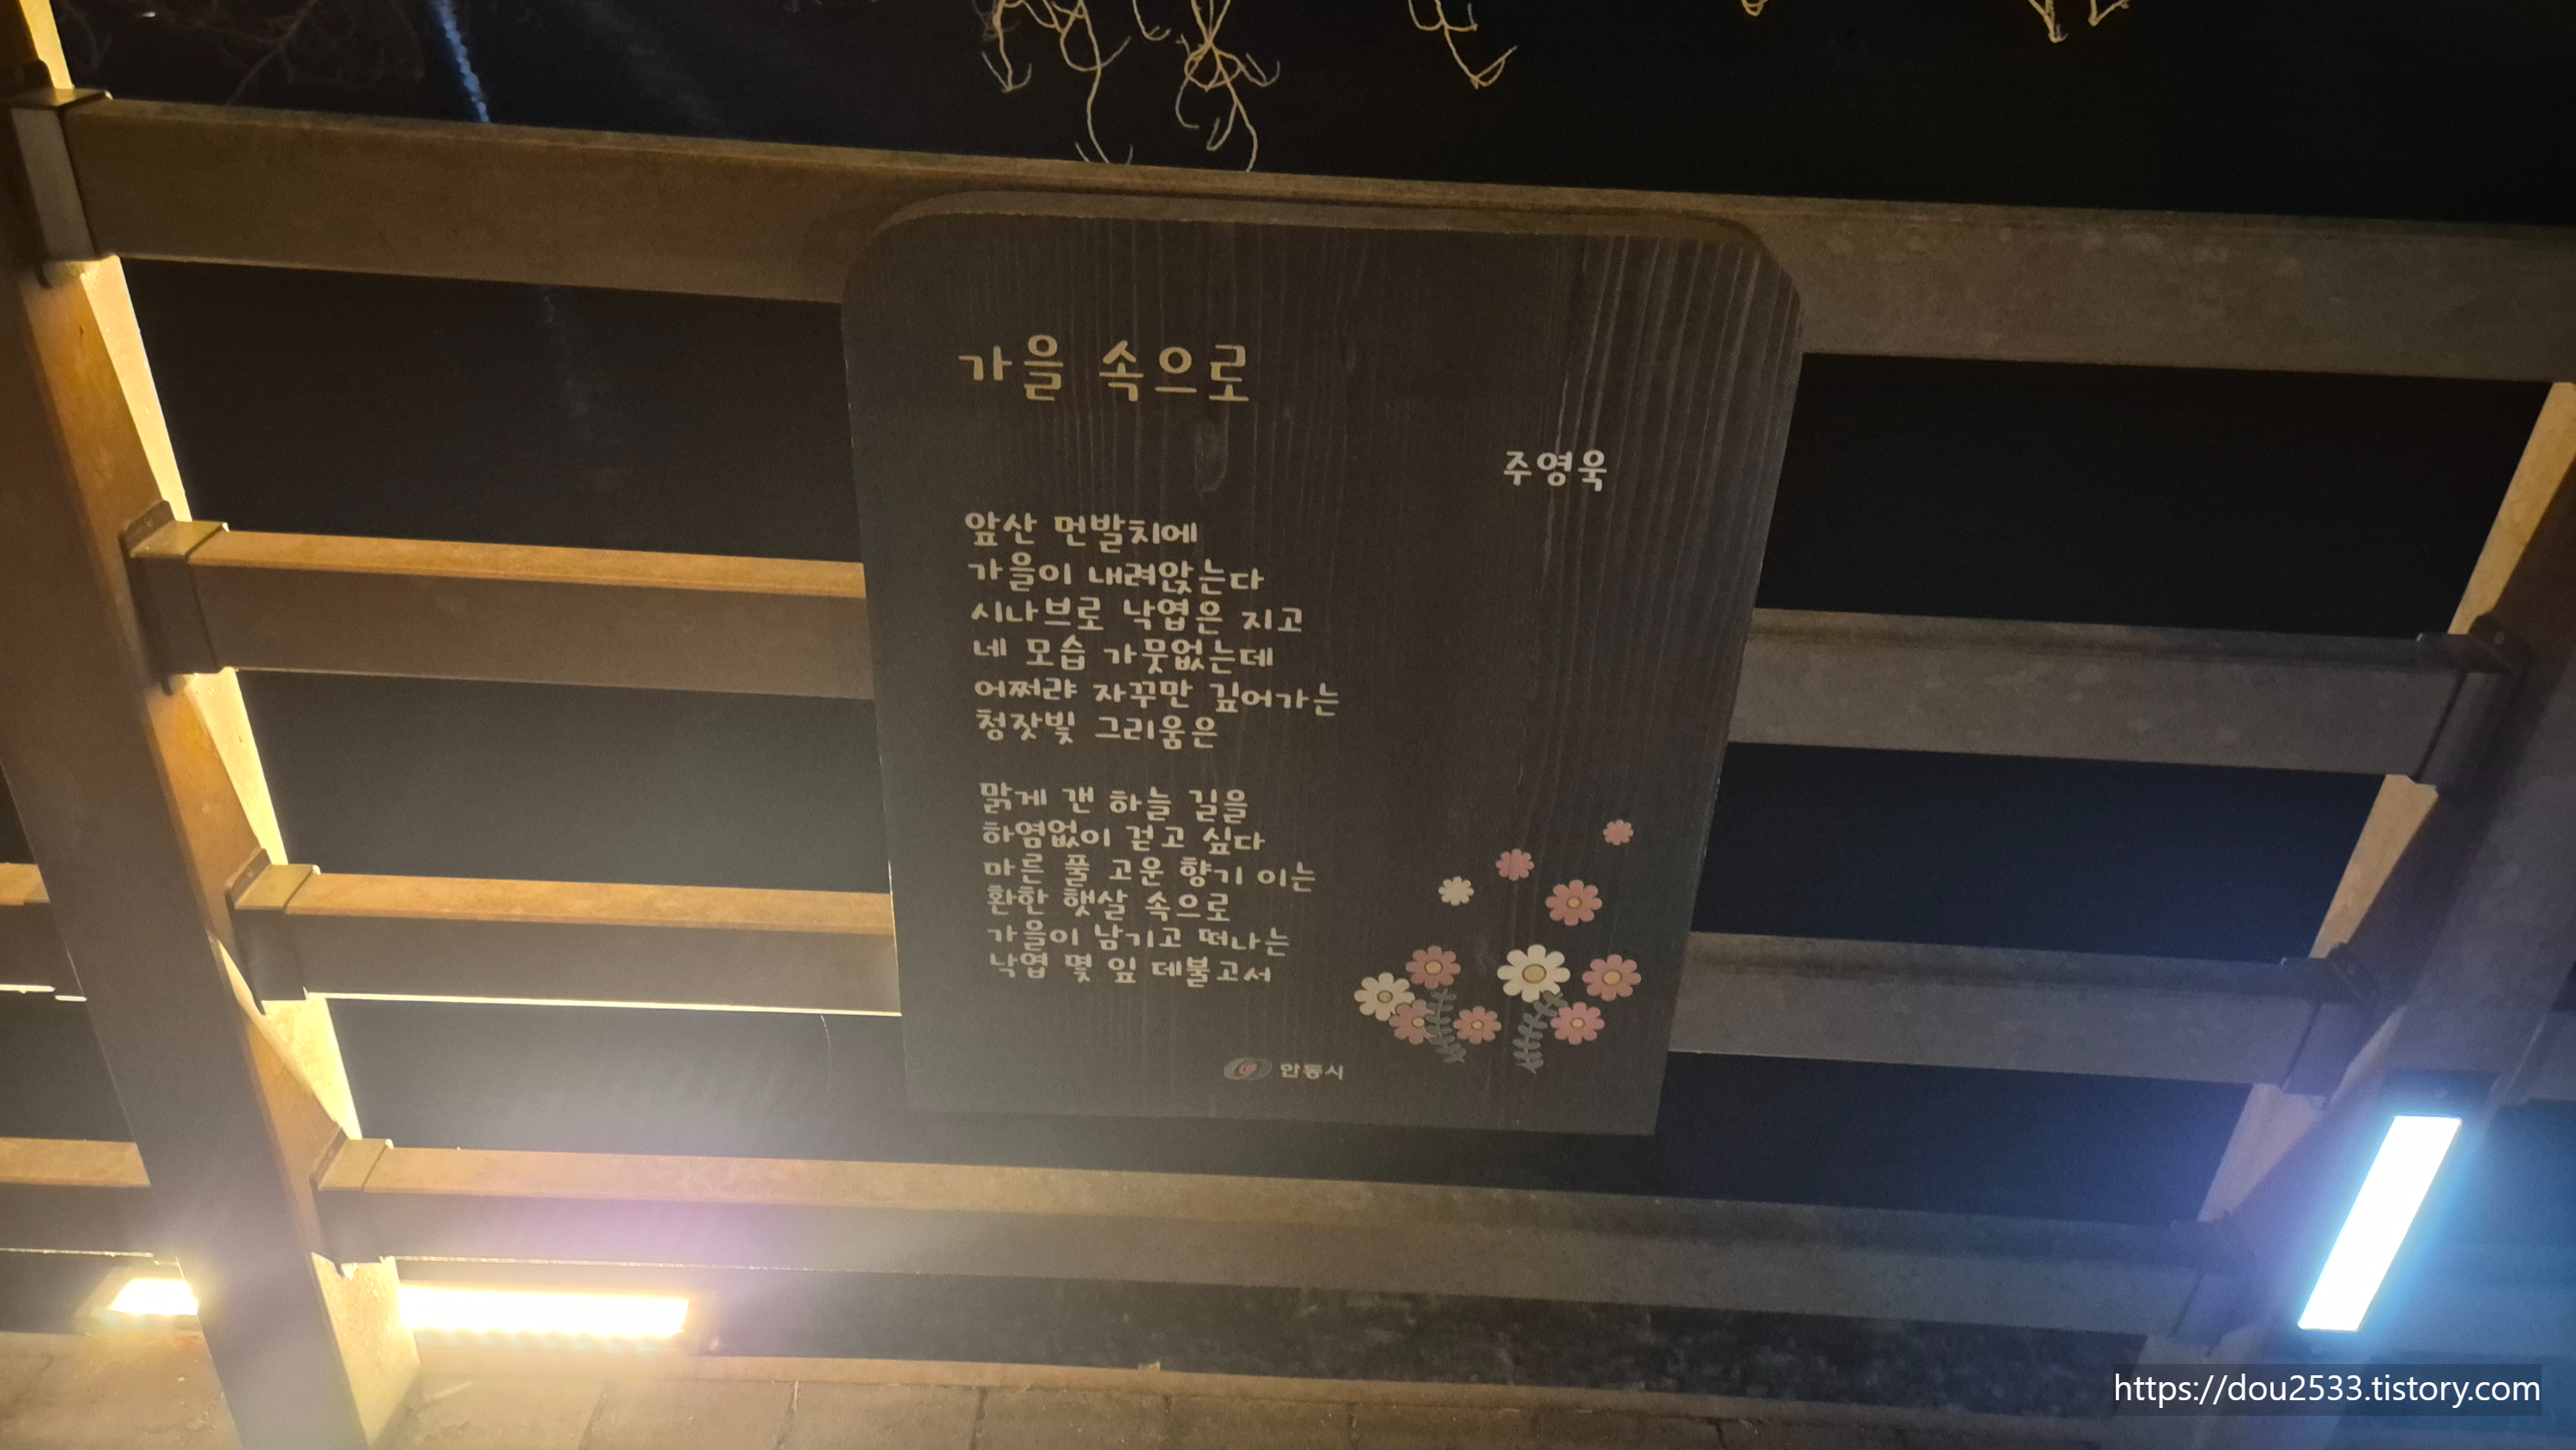 가을 속으로
주영욱
앞산 먼발치에
가을이 내려앉는다
시나브로 낙엽은 지고
네 모습 가뭇없는데
어쩌랴 자꾸만 깊어가는
청잣빛 그리움은
맑게 갠 하늘 길을
하염없이 걷고 싶다
마른 풀 고운 향기 이는
환한 햇살 속으로
가을이 남기고 떠나는
낙엽 몇 잎 데불고서
안동시
https://dou2533.tistory.com